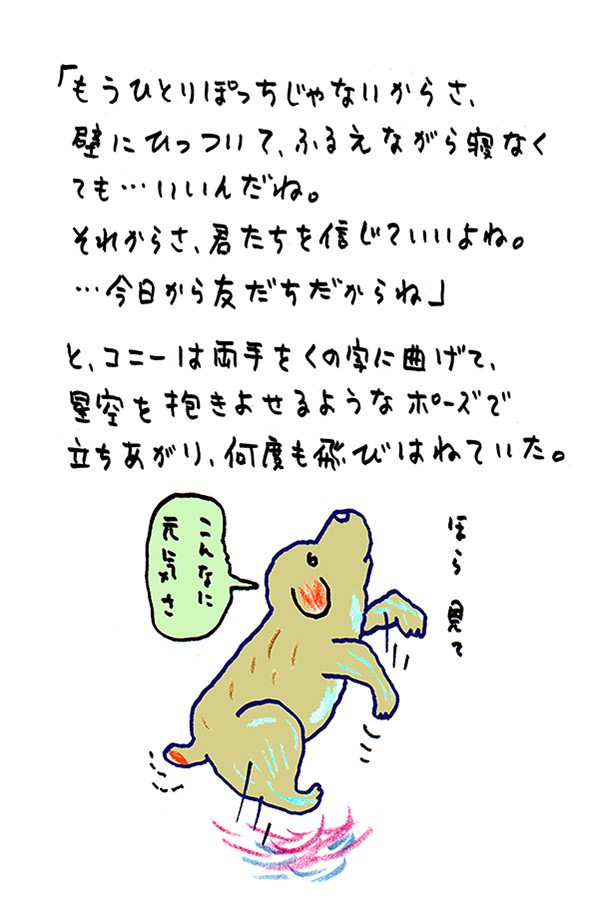 「もうひとりぽっちじゃないからさ、
壁にひっついて、ふるえながら寝なく
ても…いいんだね。
それからさ、君たちを信じていいよね。
…今日から友だちだからね」
と、コニーは両手をくの字に曲げて、
星空を抱きよせるようなポーズで
立ちあがり、何度も飛びはねていた。
ほら 見て
こんなに
元気さ